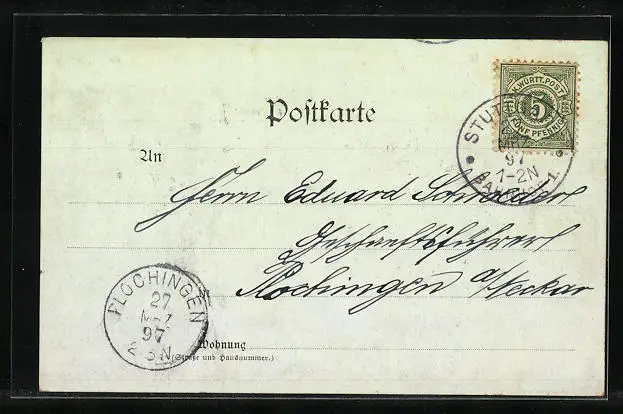 K. WÜRTT. POST
5
FÜNF PFENNIG
Postkarte
STUTT
MRZ
97
1-2N
BAHNHOF 1.
An
Herrn Eduard Schneider
Geschaeftsführer
Plochingen a/Neckar
in
PLOCHINGEN
27
MRZ
97
2-3N
Wohnung
(Straße und Hausnummer.)